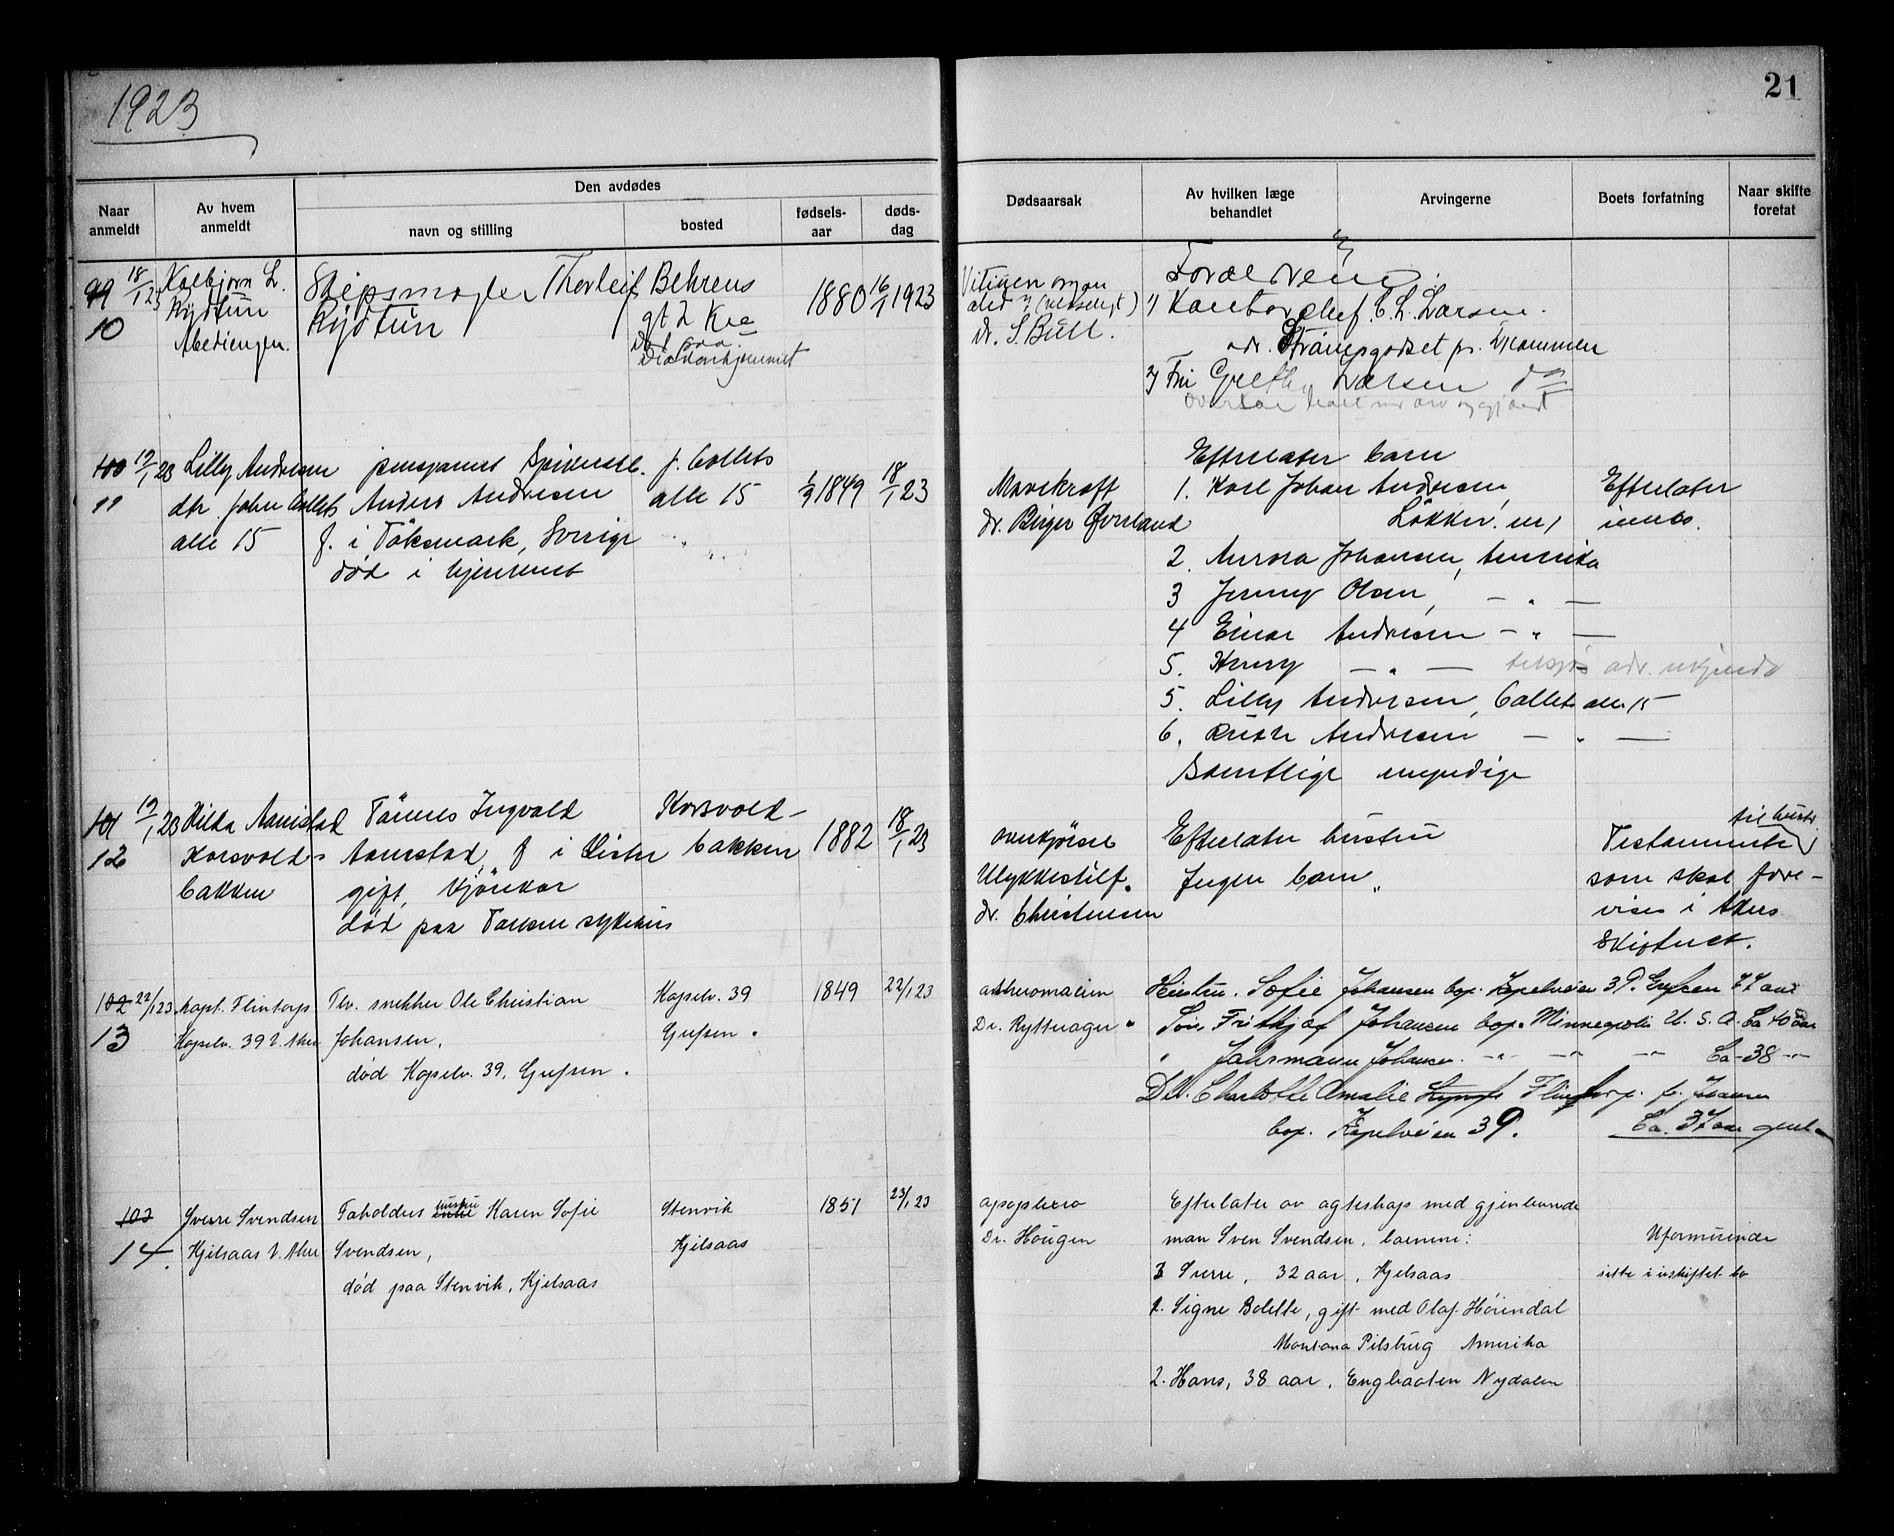 1923
21
Den avdødes
Naar anmeldt
Av hvem anmeldt
navn og stilling
bosted
fødsels-aar
døds-dag
Dødsaarsak
Av hvilken læge behandlet
Arvingerne
Boets forfatning
Naar skifte foretat
99 18/1 23
10
Kolbjørn L.
Rydtun
Skipsmægler Thorleif
Rydtun
Behrens
gt 2 Kra
Død paa
Diakonhjemmet
1880
16/1 1923
Dr. S. Bull.
Forældrene
1) Kontorchef C. L. Larsen.
adr. Strømsgodset pr. Drammen
2) Fru Grethe Larsen do
100 19/1 23
11
Lilly Andresen
dtr. John Collets
alle 15
pensjonert
Anders Andresen
f. i Töksmark, Sverige
død i hjemmet
J. Collets
alle 15
1/9 1849
18/1 23
Mavekræft
dr. Birger Øverland
Efterlater barn
1. Karl Johan Andresen,
Løkken
2. Aurora Johansen, Amerika
3 Jenny Olsen, — " —
4 Einar Andresen — " —
5. Henry — " — tilsjøs adr. ukjendt
5. Lilly Andresen, Collets alle 15
6. Ruth Andresen — " —
Samtlige myndige
Efterlater
innbo.
101 19/1 23
12
Hilda Aamstad
Korsvolds
bakken
Tönnes Ingvald
Aamstad, f i Lister
gift, kjörekar
død paa Taasen sykehus
Korsvold-
bakken
1882
18/1 23
overkjörsel
Ulykkestilf.
dr. Christensen
Efterlater hustru
Ingen barn
til hustr.
Testamente
som skal fore-
vises i Akers
skifteret.
102 22/1 23
13
Kapt. Flintorp
Kapelv. 39 V. Aker
Tlv. snekker Ole Christian
Johansen,
død Kapelv. 39, Grefsen.
Kapelv. 39
Grefsen.
1849
22/1 23
Dr. Rytterager
Hustru. Sofie Johansen bop. Kapelveien 39. Grefsen 77 aar
Søn Frithjof Johansen bop. Minneapolis U. S. A. Ca 40 aar
" Johansen. —"— —"— —"— Ca 38 —"—
Dtr. Charlotte Amalie Flintorp. f. Johansen
bop. Kapelveien 39. Ca. 37 aar
103
14.
Sverre Svendsen
Kjelsaas V. Aker
Foholders hustru Karen Sofie
Svendsen,
død paa Stenvik, Kjelsaas
Stenvik
Kjelsaas
1851
23/1 23
apoplexia
Dr. Hougen
Efterlater av egteskap med gjenlevende
man Sven Svendsen, barnene:
3 Sverre, 32 aar, Kjelsaas
1. Signe Bolette, gift med Olaf Høiendal
Montana Pilsburg Amerika
2. Hans, 38 aar, Enghaaten Nydalen
Uformuende
sitte i uskiftet bo